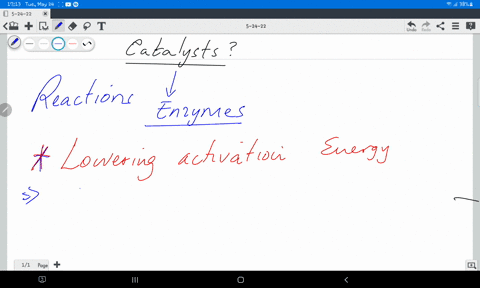 17:13 Tue, May 24
38%
5-24-22
5-24-22
Undo Redo
Catalysts?
Reactions Enzymes
* Lowering activation Energy
1/1 Page +